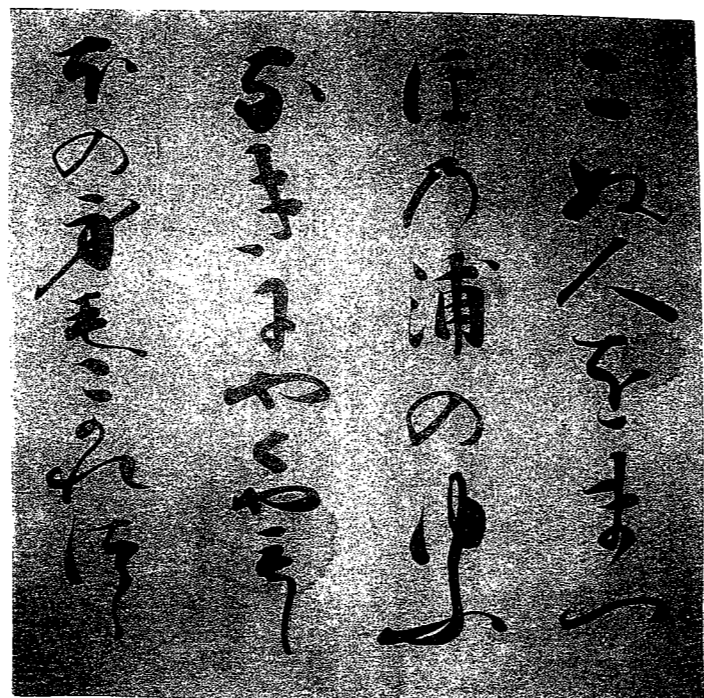 こぬ人をまつ
ほの浦のゆふ
なきにやくやもし
ほの身もこかれつゝ